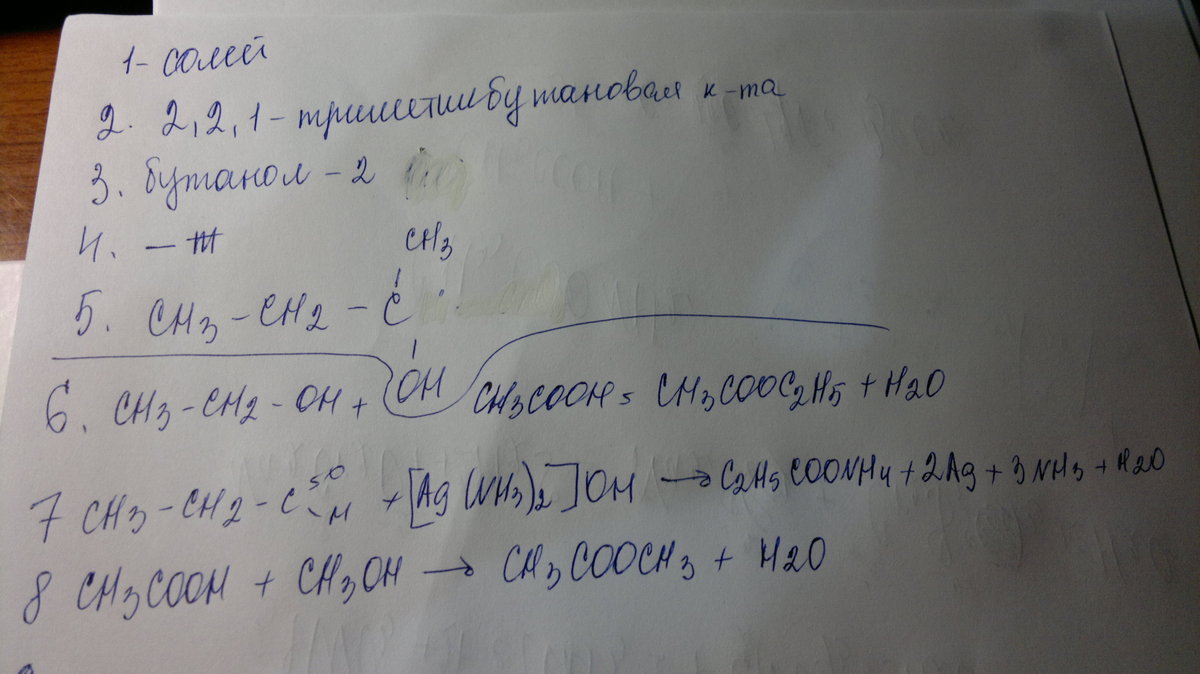 1- солей
2. 2,2,1-триметилбутановая к-та
3. бутанол-2
4. —
CH3
5. CH3-CH2-C
OH
6. CH3-CH2-OH + CH3COOH = CH3COOC2H5 + H2O
7 CH3-CH2-C=O-H + [Ag(NH3)2]OH → C2H5COONH4 + 2Ag + 3NH3 + H2O
8 CH3COOH + CH3OH → CH3COOCH3 + H2O